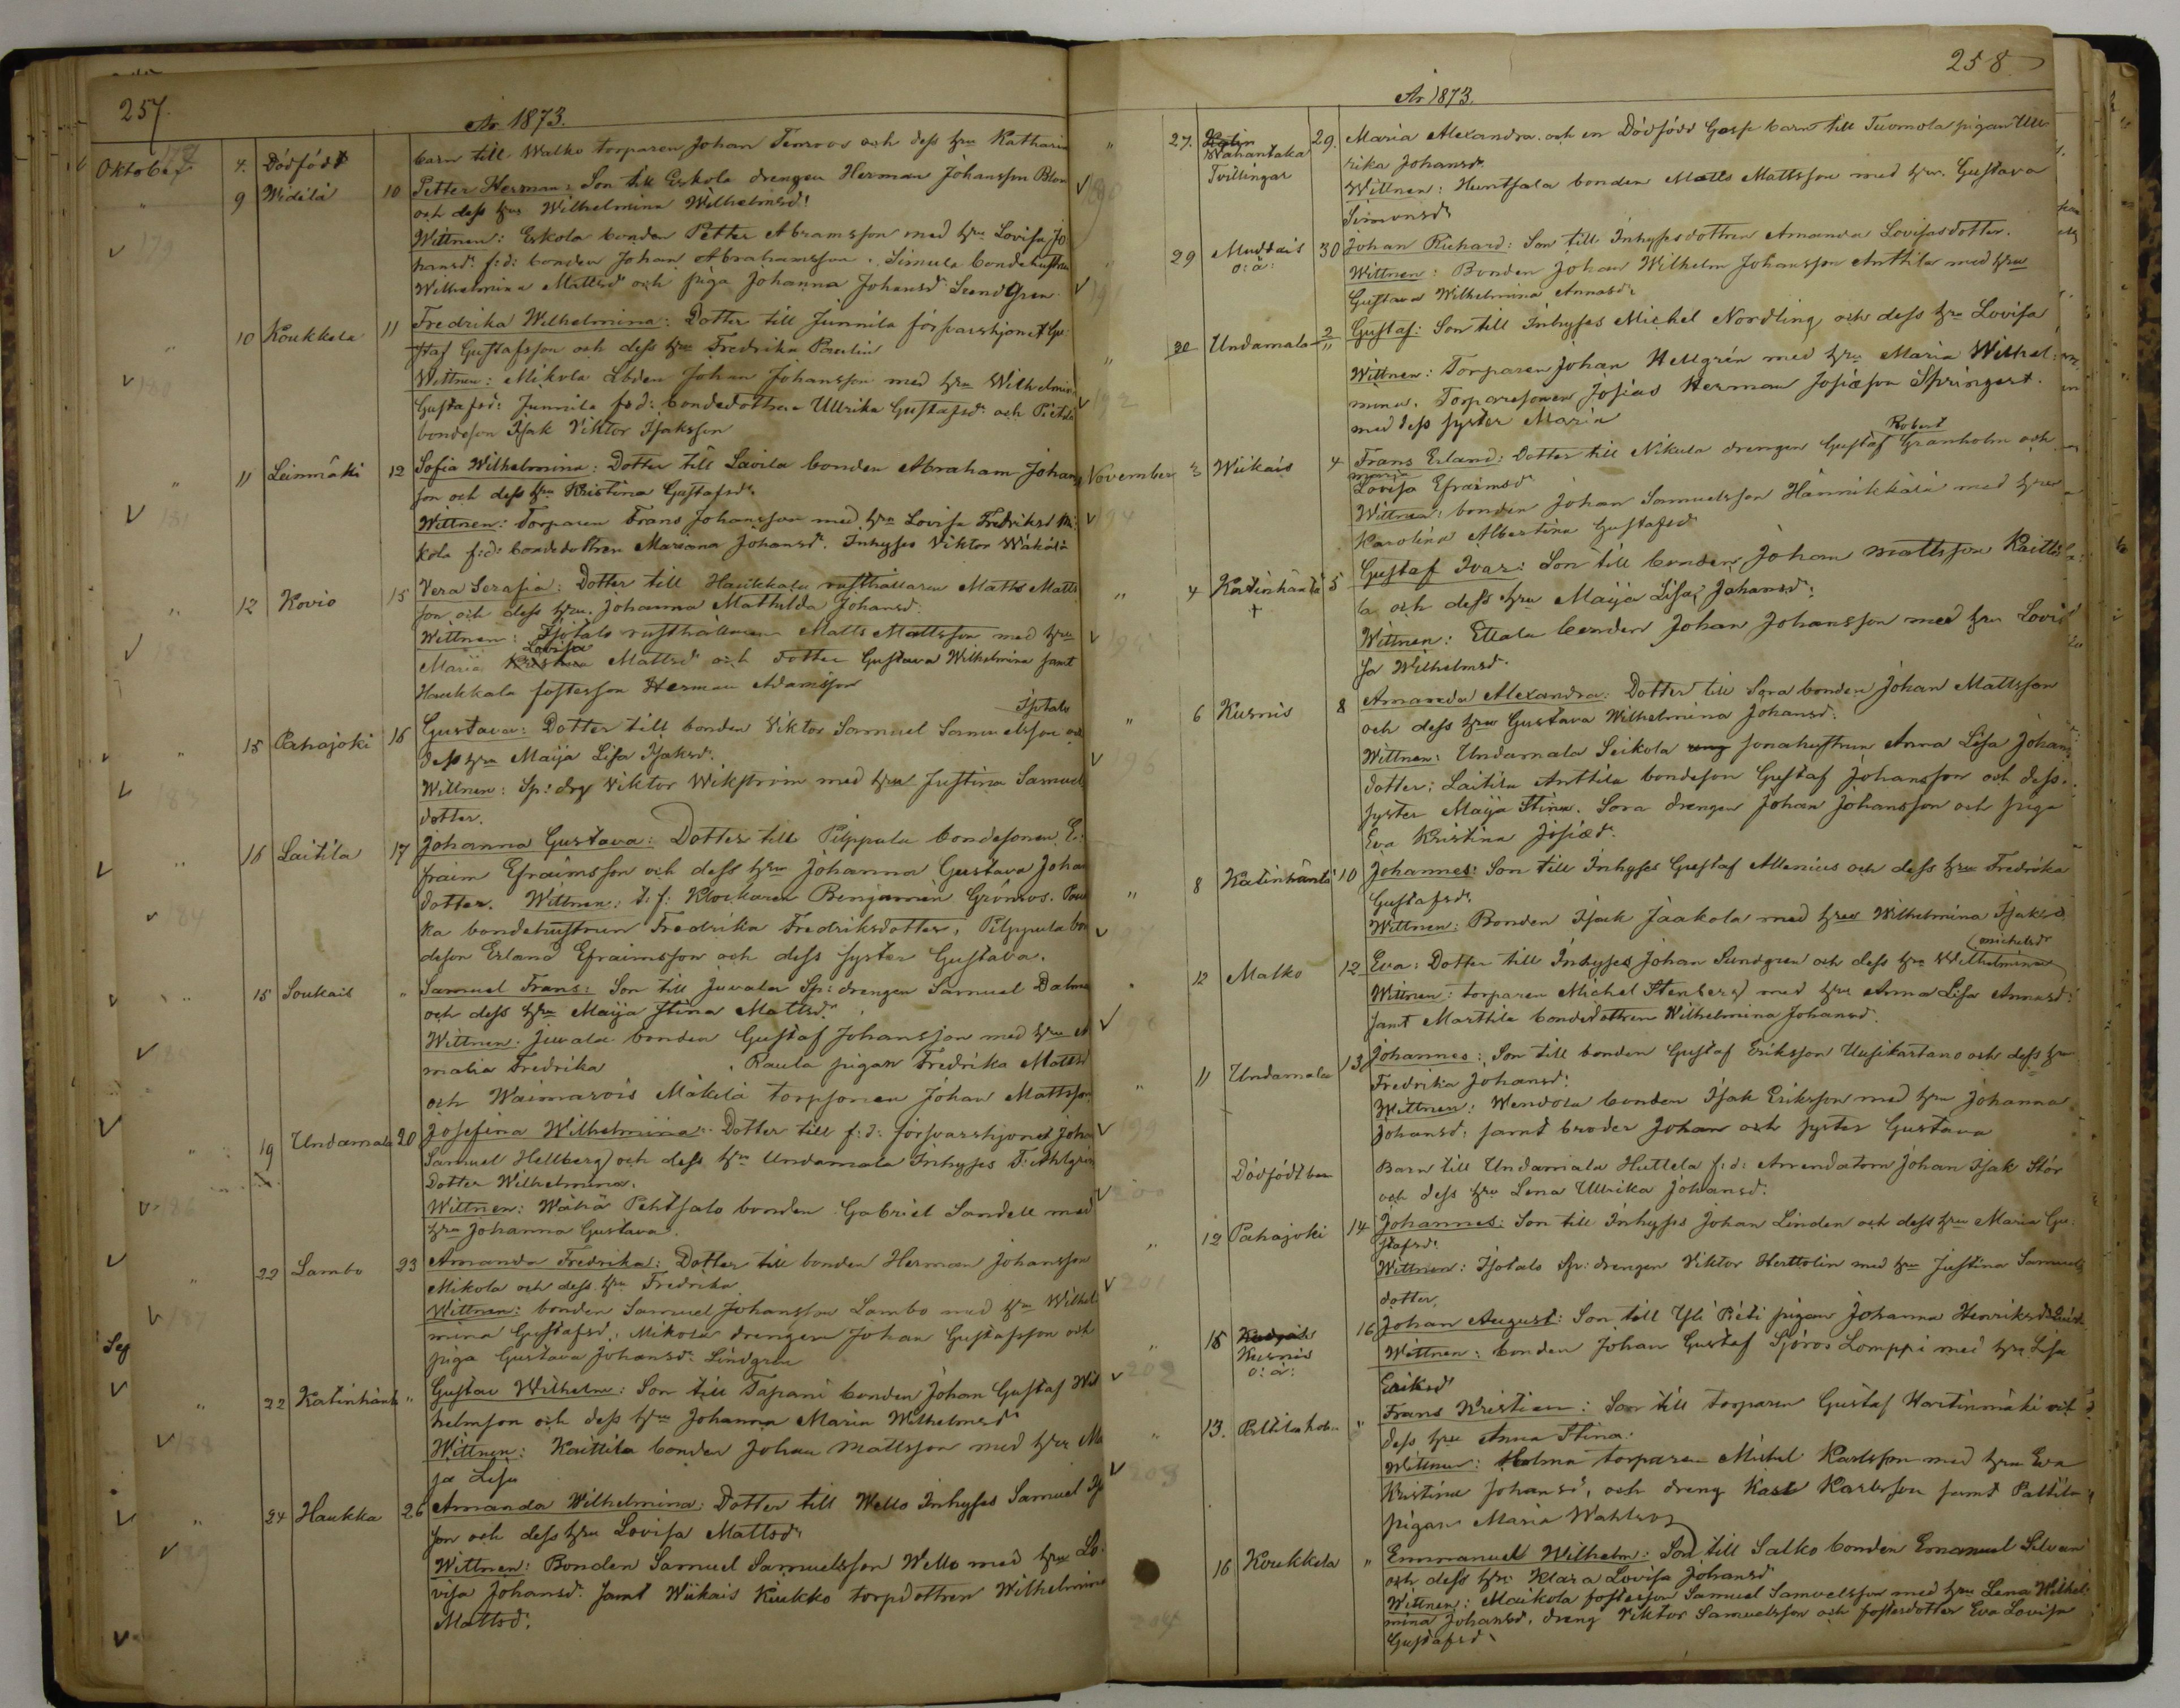 257.
År 1873.
Oktober 4. Dödfödt barn till Walko torparen Johan Tenroos och dess hru Katharin
" 9 Widilä 10 Petter Herman: Son till Eskola drengen Herman Johansson Blom
och dess hru Wilhelmina Wilhelmsd:
Wittnen: Eskola bonden Petter Abramsson med hru Lovisa Jo
hansd: f:d: bonden Johan Abrahamsson. Simula bondehustrun
Wilhelmina Mattsd och piga Johanna Johansd
" 10 Koukkela 11 Fredrika Wilhelmina: Dotter till Junnila försvarshjonet Gu:
staf Gustafsson och dess hru Fredrika Paulin
Wittnen: Mikola Johan Johansson med hru Wilhelmin
Gustafsd: Junnila f:d: bondedottren Ullrika Gustafsd: och Pietilä
bondeson Isak Viktor Isaksson
" 11 Leinmäki 12 Sofia Wilhelmina: Dotter till Lavila bonden Abraham Johans
son och dess hru Kristina Gustafsd:
Wittnen: Torparen Frans Johansson med hru Lovisa Fredriksd Mi:
kola f:d: bondedottren Mariana Johansd. Inhyses Viktor Wäkälä
" 12 Kovio 15 Vera Serafia: Dotter till Haukkala rusthållaren Matts Matts
son och dess hru Johanna Mathilda Johansd.
Wittnen: Isotalo rusthållaren Matts Mattsson med hru
Lovisa
Maria Mattsd och dotter Gustava Wilhelmina samt
Haukkala fosterson Herman Adamsson
Isotalo
" 15 Pahajoki 16 Gustava: Dotter till bonden Viktor Samuel Samuelsson och
dess hru Maija Lisa Isaksd:
Wittnen: Sp: drg Viktor Wikström med hru Justina Samuels
dotter.
" 16 Laitila 17 Johanna Gustava: Dotter till Pilppula bondesonen E:
fraim Efraimsson och dess hru Johanna Gustava Johans
dotter. Wittnen: t.f: Klockaren Benjamin Grönroos. Pau
ka bondehustrun Fredrika Fredriksdotter, Pilppula bon
deson Erland Efraimsson och dess syster Gustava.
" 15 Soukais " Samuel Frans: Son till Juvala Sp: drengen Samuel Dalma
och dess hru Maija Stina Mattsd:
Wittnen: Juvala bonden Gustaf Johansson med hru A
malia Fredrika , Raula pigan Fredrika Mattsd
och Waimarois Mäkilä torpsonen Johan Mattsson
" 19 Undamala 20 Josefina Wilhelmina: Dotter till f:d: försvarshjonet Joha
Samuel Hellberg och dess hru Undamala Inhyses F. Ahlgren
Dotter Wilhelmina.
Wittnen: Wähä Pehtsalo bonden Gabriel Sandell med
hru Johanna Gustava.
" 22 Lambo 23 Amanda Fredrika: Dotter till bonden Herman Johansson
Mikola och dess hru Fredrika
Wittnen: bonden Samuel Johansson Lambo med hru Wilhel
mina Gustafsd. Mikola drengen Johan Gustafsson och
piga Gustava Johansd: Lindgren
" 22 Katinhänta " Gustav Wilhelm: Son till Tapani bonden Johan Gustaf Wil
helmson och dess hru Johanna Maria Wilhelmsd:
Wittnen: Kaittila bonden Johan Mattsson med hru Ma
ja Lisa
" 24 Haukka 26 Amanda Wilhelmina: Dotter till Wello Inhyses Samuel Isa
son och dess hru Lovisa Mattsd:
Wittnen: Bonden Samuel Samuelsson Wello med hru Lo
visa Johansd: samt Wiikais Kiukko torpdottren Wilhelmina
Mattsd:
258
År 1873.
" 27. Wahantaka 29. Maria Alexandra. och en Dödfödd Gosse barn till Tuomola pigan Ull
Tvillingar rika Johansd:
Wittnen: Huntsala bonden Matts Mattsson med hru Gustava
Simonsd:
" 29 Muttais 30 Johan Richard: Son till Inhysesdottren Amanda Lovisasdotter.
o: ä: Wittnen: Bonden Johan Wilhelm Johansson Anttila med hru
Gustava Wilhelmina Annasd:
" 20 Undamala 2/11 Gustaf: Son till Inhyses Michel Nordling och dess hru Lovisa
Wittnen: Torparen Johan Hellgrén med hru Maria Wilhel:
mina. Torparesonen Josias Herman Josiasson Springert.
med dess syster Maria
Robert
November 3 Wiikais 4 Frans Erland: Dotter till Nikula drengen Gustaf Granholm och
Maria
Lovisa Efraimsd:
Wittnen: bonden Johan Samuelsson Hännikkälä med hru
Karolina Albertina Gustafsd:
" 4 Katinhänta 5 Gustaf Ivar: Son till bonden Johan Mattsson Kaitti
la och dess hru Maija Lisa Johansd:
Wittnen: Ettala bonden Johan Johansson med hru Lovi
sa Wilhelmsd:
" 6 Kurnis 8 Amanda Alexandra: Dotter till Sora bonden Johan Mattsson
och dess hru Gustava Wilhelmina Johansd:
Wittnen: Undamala Seikola sonahustrun Anna Lisa Johans
dotter; Laitila Anttila bondeson Gustaf Johansson och dess
syster Maija Stina. Sora drengen Johan Johansson och piga
Eva Kristina Josiæd:
" 8 Katinhänta 10 Johannes: Son till Inhyses Gustaf Allenius och dess hru Fredrika
Gustafsd:
Wittnen: Bonden Isak Jaakola med hru Wilhelmina Isaksd
(Michelsd:
" 12 Malko 12 Eva: Dotter till Inhyses Johan Sundgren och dess hru Wilhelmina
Wittnen: torparen Michel Stenberg med hru Anna Lisa Annasd:
samt Marttila bondedottren Wilhelmina Johansd:
" 11 Undamala 13 Johannes: Son till bonden Gustaf Eriksson Uusikartano och dess hru
Fredrika Johansd:
Wittnen: Wendola bonden Isak Eriksson med hru Johanna
Johansd: samt broder Johan och syster Gustava
Dödfödt barn Barn till Undamala Huttela f:d: Arrendatorn Johan Isak Stór
och dess hru Lena Ullrika Johansd:
" 12 Pahajoki 14 Johannes: Son till Inhyses Johan Linden och dess hru Maria Gu:
stafsd:
Wittnen: Isotalo Sp: drengen Viktor Herttolin med hru Justina Samuels
dotter,
" 15 Kurnis 16 Johan August: Son till Yli Pieti pigan Johanna Henriksd:
o: ä: Wittnen: bonden Johan Gustaf Sjöros Lomppi med hru Lisa
Eriksd
" 13. " Frans Kristian: Son till torparen Gustaf Wartinmäki och
dess hru Anna Stina:
Wittnen: Holma torparen Michel Karlsson med hru Eva
Kristina Johansd: och dreng Karl Karlsson samt Palttila
pigan Maria Wahlroos
16 Koukkela " Emmanuel Wilhelm: Son till Salko bonden Emanuel Silvan
och dess hru Klara Lovisa Johansd
Wittnen: Maikola fosterson Samuel Samuelsson med hru Lena Wilhel
mina Johansd. dreng Viktor Samuelsson och fosterdotter Eva Lovisa
Gustafsd: